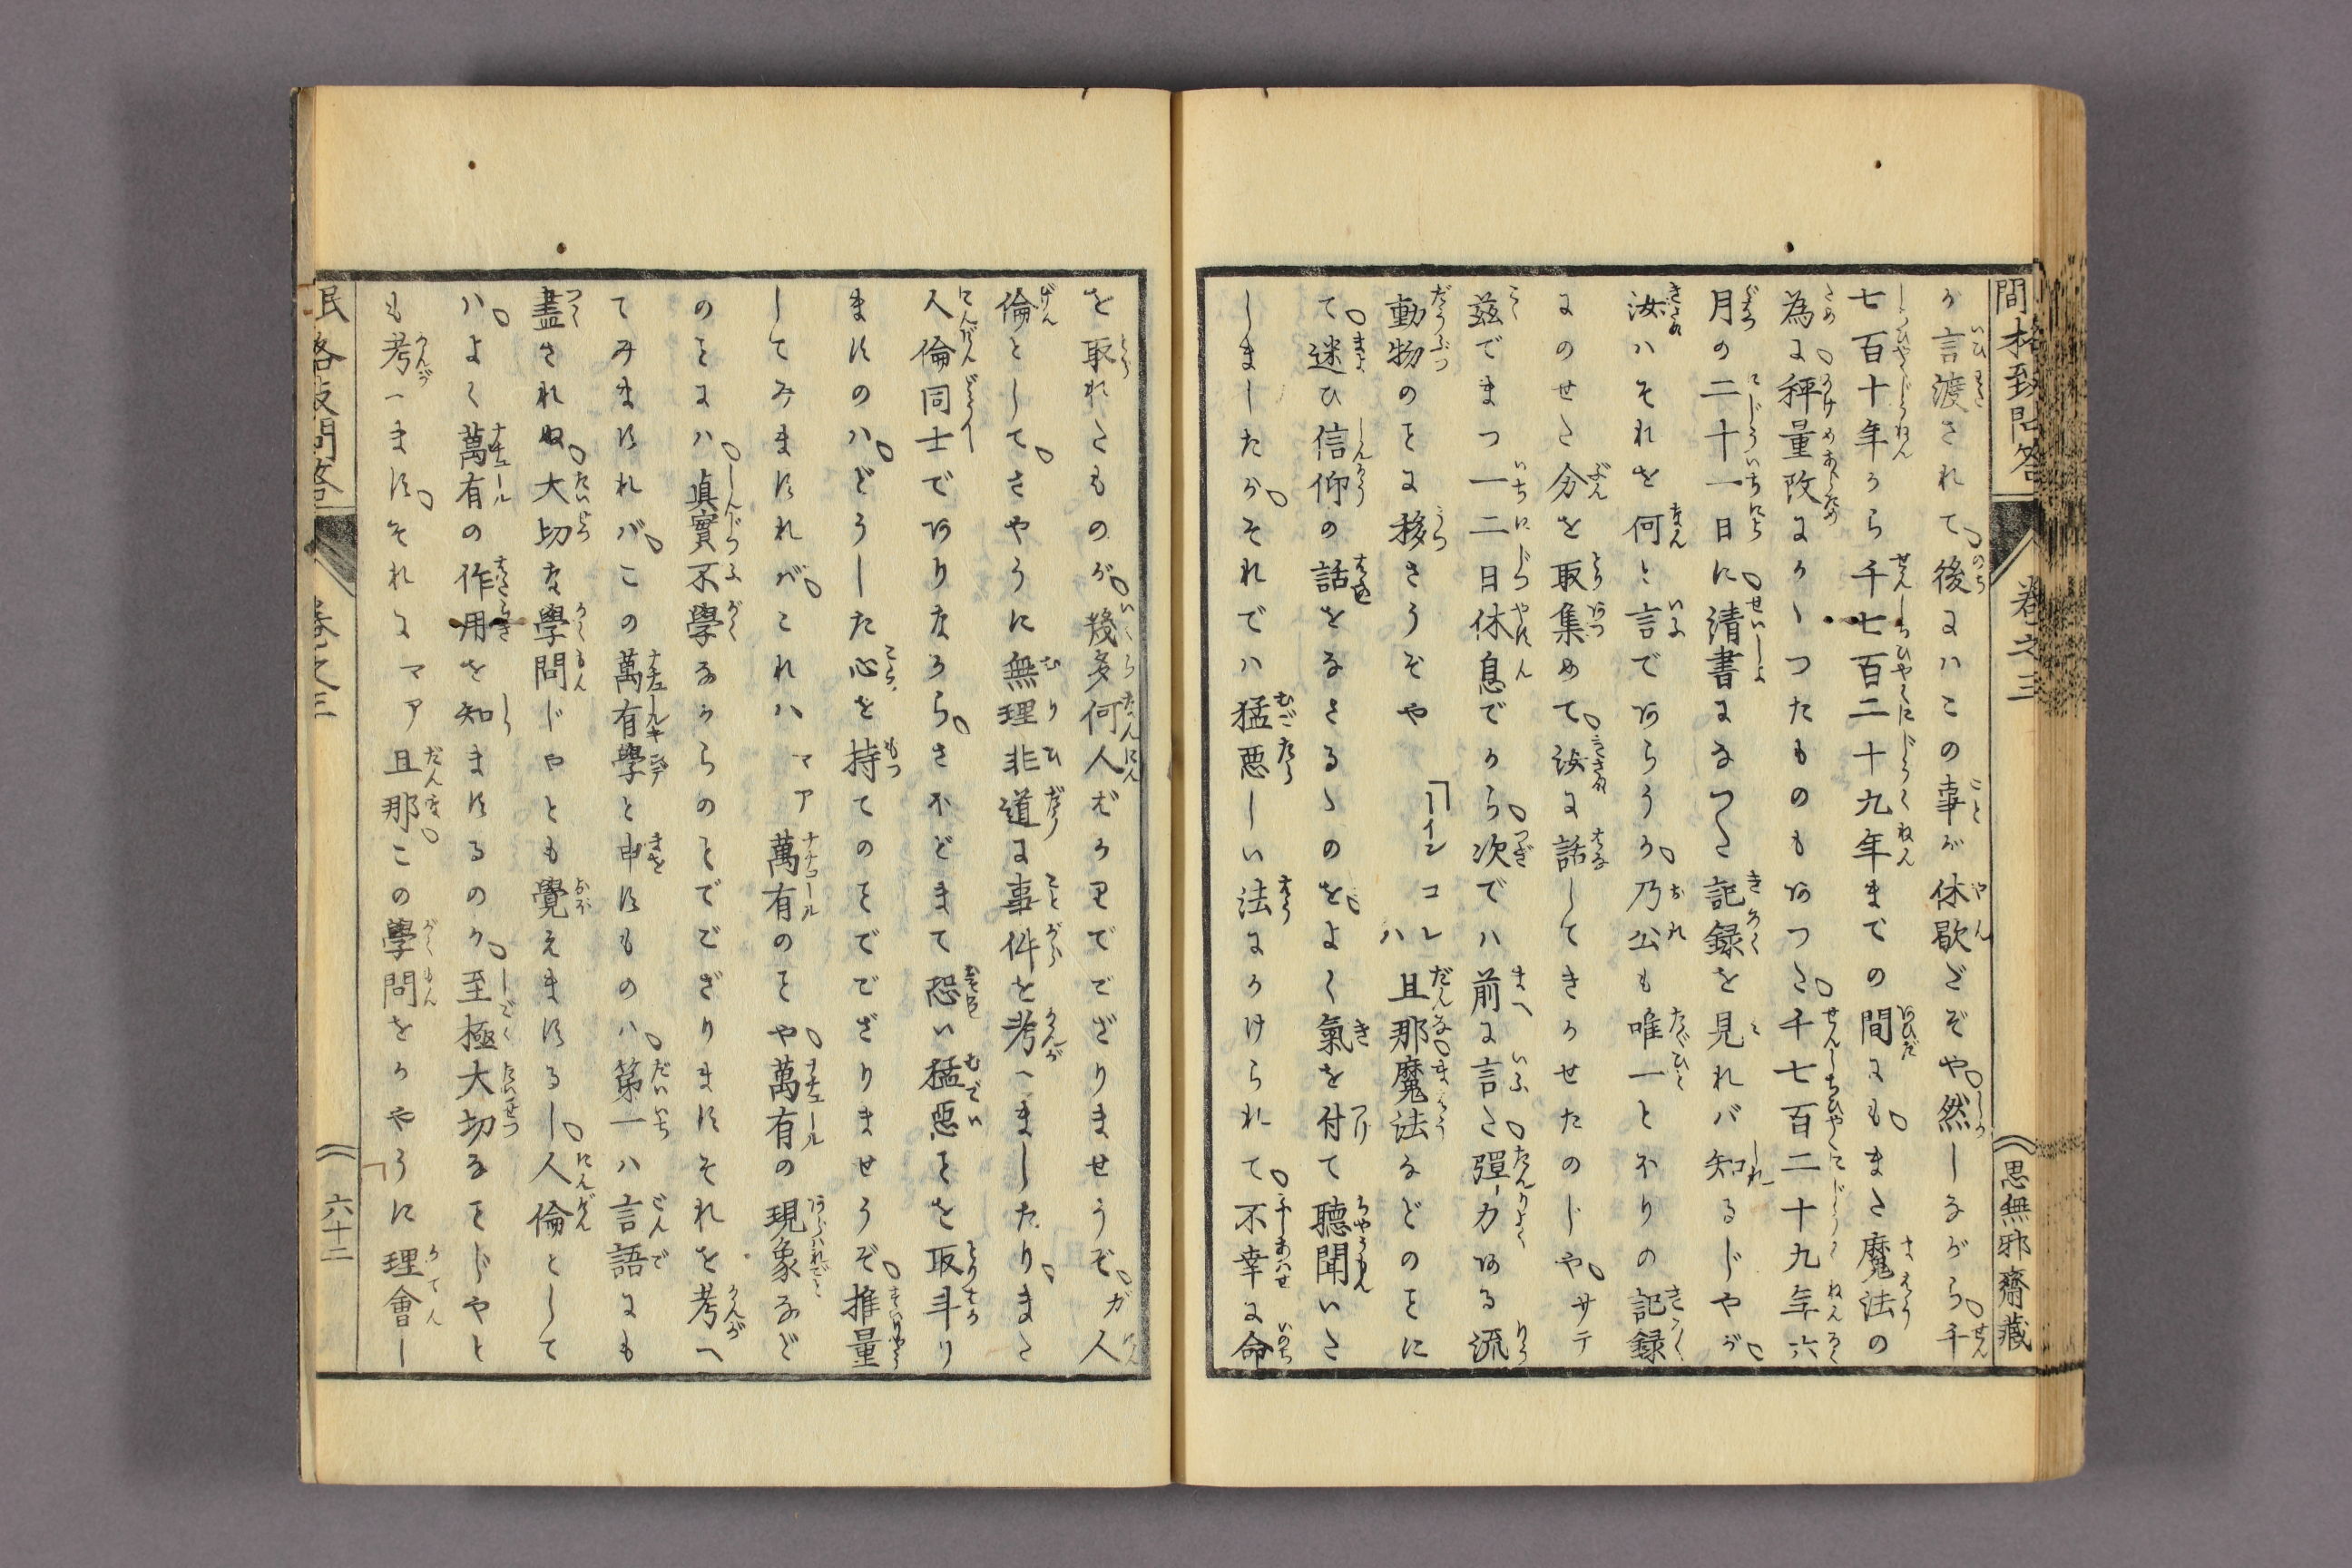 間格致問答 卷之三 思無邪齋藏
か言渡されて後にハこの事が休歇だぞや然しながら千
七百十年から千七百二十九年までの間にもまた魔法の
為に秤量改にかゝつたものもあつた千七百二十九年六
月の二十一日に清書になつた記録を見れバ知るじやが
汝ハそれを何と言であらうか乃公も唯一とほりの記録
にのせた分を取集めて汝に話してきかせたのじやサテ
茲でまつ一二日休息でから次でハ前に言た彈力ある流
動物のことに移さうぞや コレハ 且那魔法などのことに
て迷ひ信仰の話をなさるゝのをよく氣を付て聽聞いた
しましたがそれでハ猛悪しい法にかけられて不幸に命
を取れたものが幾多何人だかヱでござりませうぞガ人
倫としてさやうに無理非道に事件を考へましたりまた
人倫同士でありながらさほどまて恐い猛悪ことを取斗り
ますのハどうした心を持てのことでござりませうぞ推量
してみますれバこれハマア萬有のことや萬有の現象など
のことにハ真實不學なからのことでござりますそれを考へ
てみますればこの萬有學と申すものハ第一ハ言語にも
盡されぬ大切な學問じやとも覺えまするし人倫として
ハよく萬有の作用を知まするのか至極大切なことじやと
も考へますそれにマア且那この學問をかやうに理會し
民格致問答 卷之三 六十二